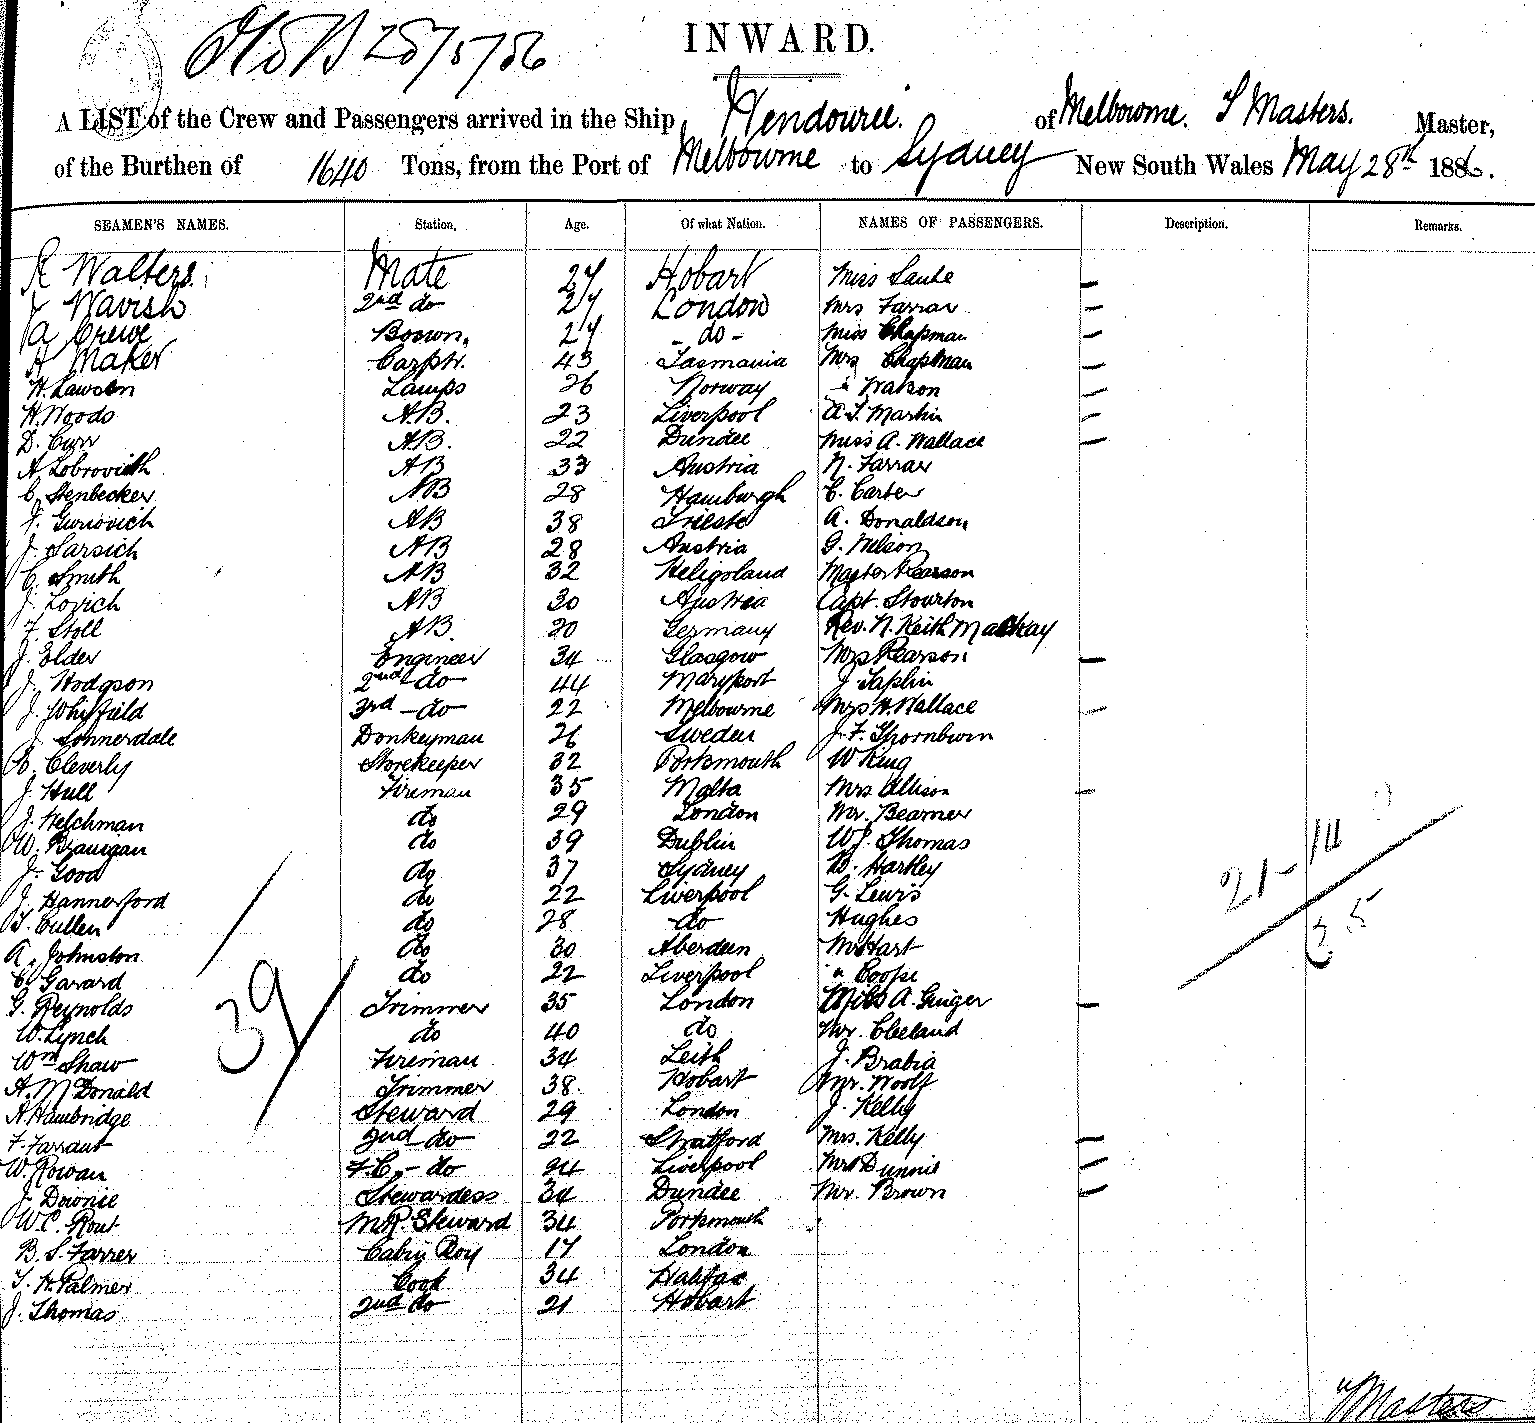 28/5/86
INWARD.
A LIST of the Crew and Passengers arrived in the Ship Wendouree. of Melbourne. T Masters. Master,
of the Burthen of 1640 Tons, from the Port of Melbourne to Sydney New South Wales May 28th 1886.
SEAMEN'S NAMES. Station, Age. Of what Nation. NAMES OF PASSENGERS. Description. Remarks.
R Walters. Mate 27 Hobart Miss
J Wavish 2nd do 27 London Mrs Farrar —
A Crewe Bosswn. 27 - do - Miss Chapman —
H Maker Carptr. 43 Tasmania Mrs Chapman —
H. Lawson Lamps 26 Norway " Watson —
H. Woods A.B. 23 Liverpool A. T. Martin —
D. Curr AB. 22 Dundee Miss A. Wallace —
A Lobrovich AB 33 Austria N. Farrar
C. Stenbecker AB 28 Hamburgh C. Carter
J. AB 38 Trieste A. Donaldson
J. Sarsich AB 28 Austria G. Nelson
C. Smith AB 32 Heligoland Master Pearson
J. Lovich AB 30 Austria Capt. Stourton
F. Stoll AB. 20 Germany Rev. N. Keith Mackay
J. Elder Engineer 34 Glasgow Mrs Pearson —
J. Hodgson 2nd do 44 Maryport J Taplin
J. Whitfield 3rd - do 22 Melbourne Mrs H. Wallace —
J. Sonnerdale Donkeyman 26 Sweden J. F. Thornburn
Cleverly Storekeeper 32 Portsmouth W King
J. Hull Fireman 35 Malta Mrs Allison —
J. Welchman do 29 London Mr. Beamer
W. Branigan do 39 Dublin W J. Thomas
J. Good do 37 Sydney Hartley
J. Hannerford do 22 Liverpool G. Lewis
T. Cullen do 28 do Hughes
A. Johnston do 30 Aberdeen Mr Hart
C. Gavard do 22 Liverpool " Coope
G. Reynolds Trimmer 35 London Miss A. Ginger —
W. Lynch do 40 do Mr. Cleeland
Wm Shaw Fireman 34 Leith J. Brabia
A. McDonald Trimmer 38. Hobart Mr. Woolf
A Hambridge Steward 29 London J. Kelly
F Farrant 2nd do 22 Stratford Mrs. Kelly —
W. Rowan F.C. - do 24 Liverpool Mrs Dunnie —
J. Downie Stewardess 34 Dundee Mr. Brown —
W C. Rout M.R. Steward 34 Portsmouth
B. S. Farrer Cabin Boy 17 London
T. H. Palmer Cook 34 Halifax
J. Thomas 2nd do 21 Hobart
39
21 - 14
35
T Masters